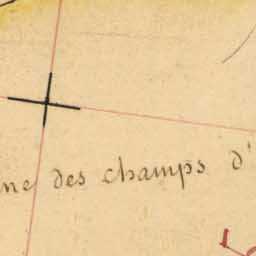 ne des champs d'